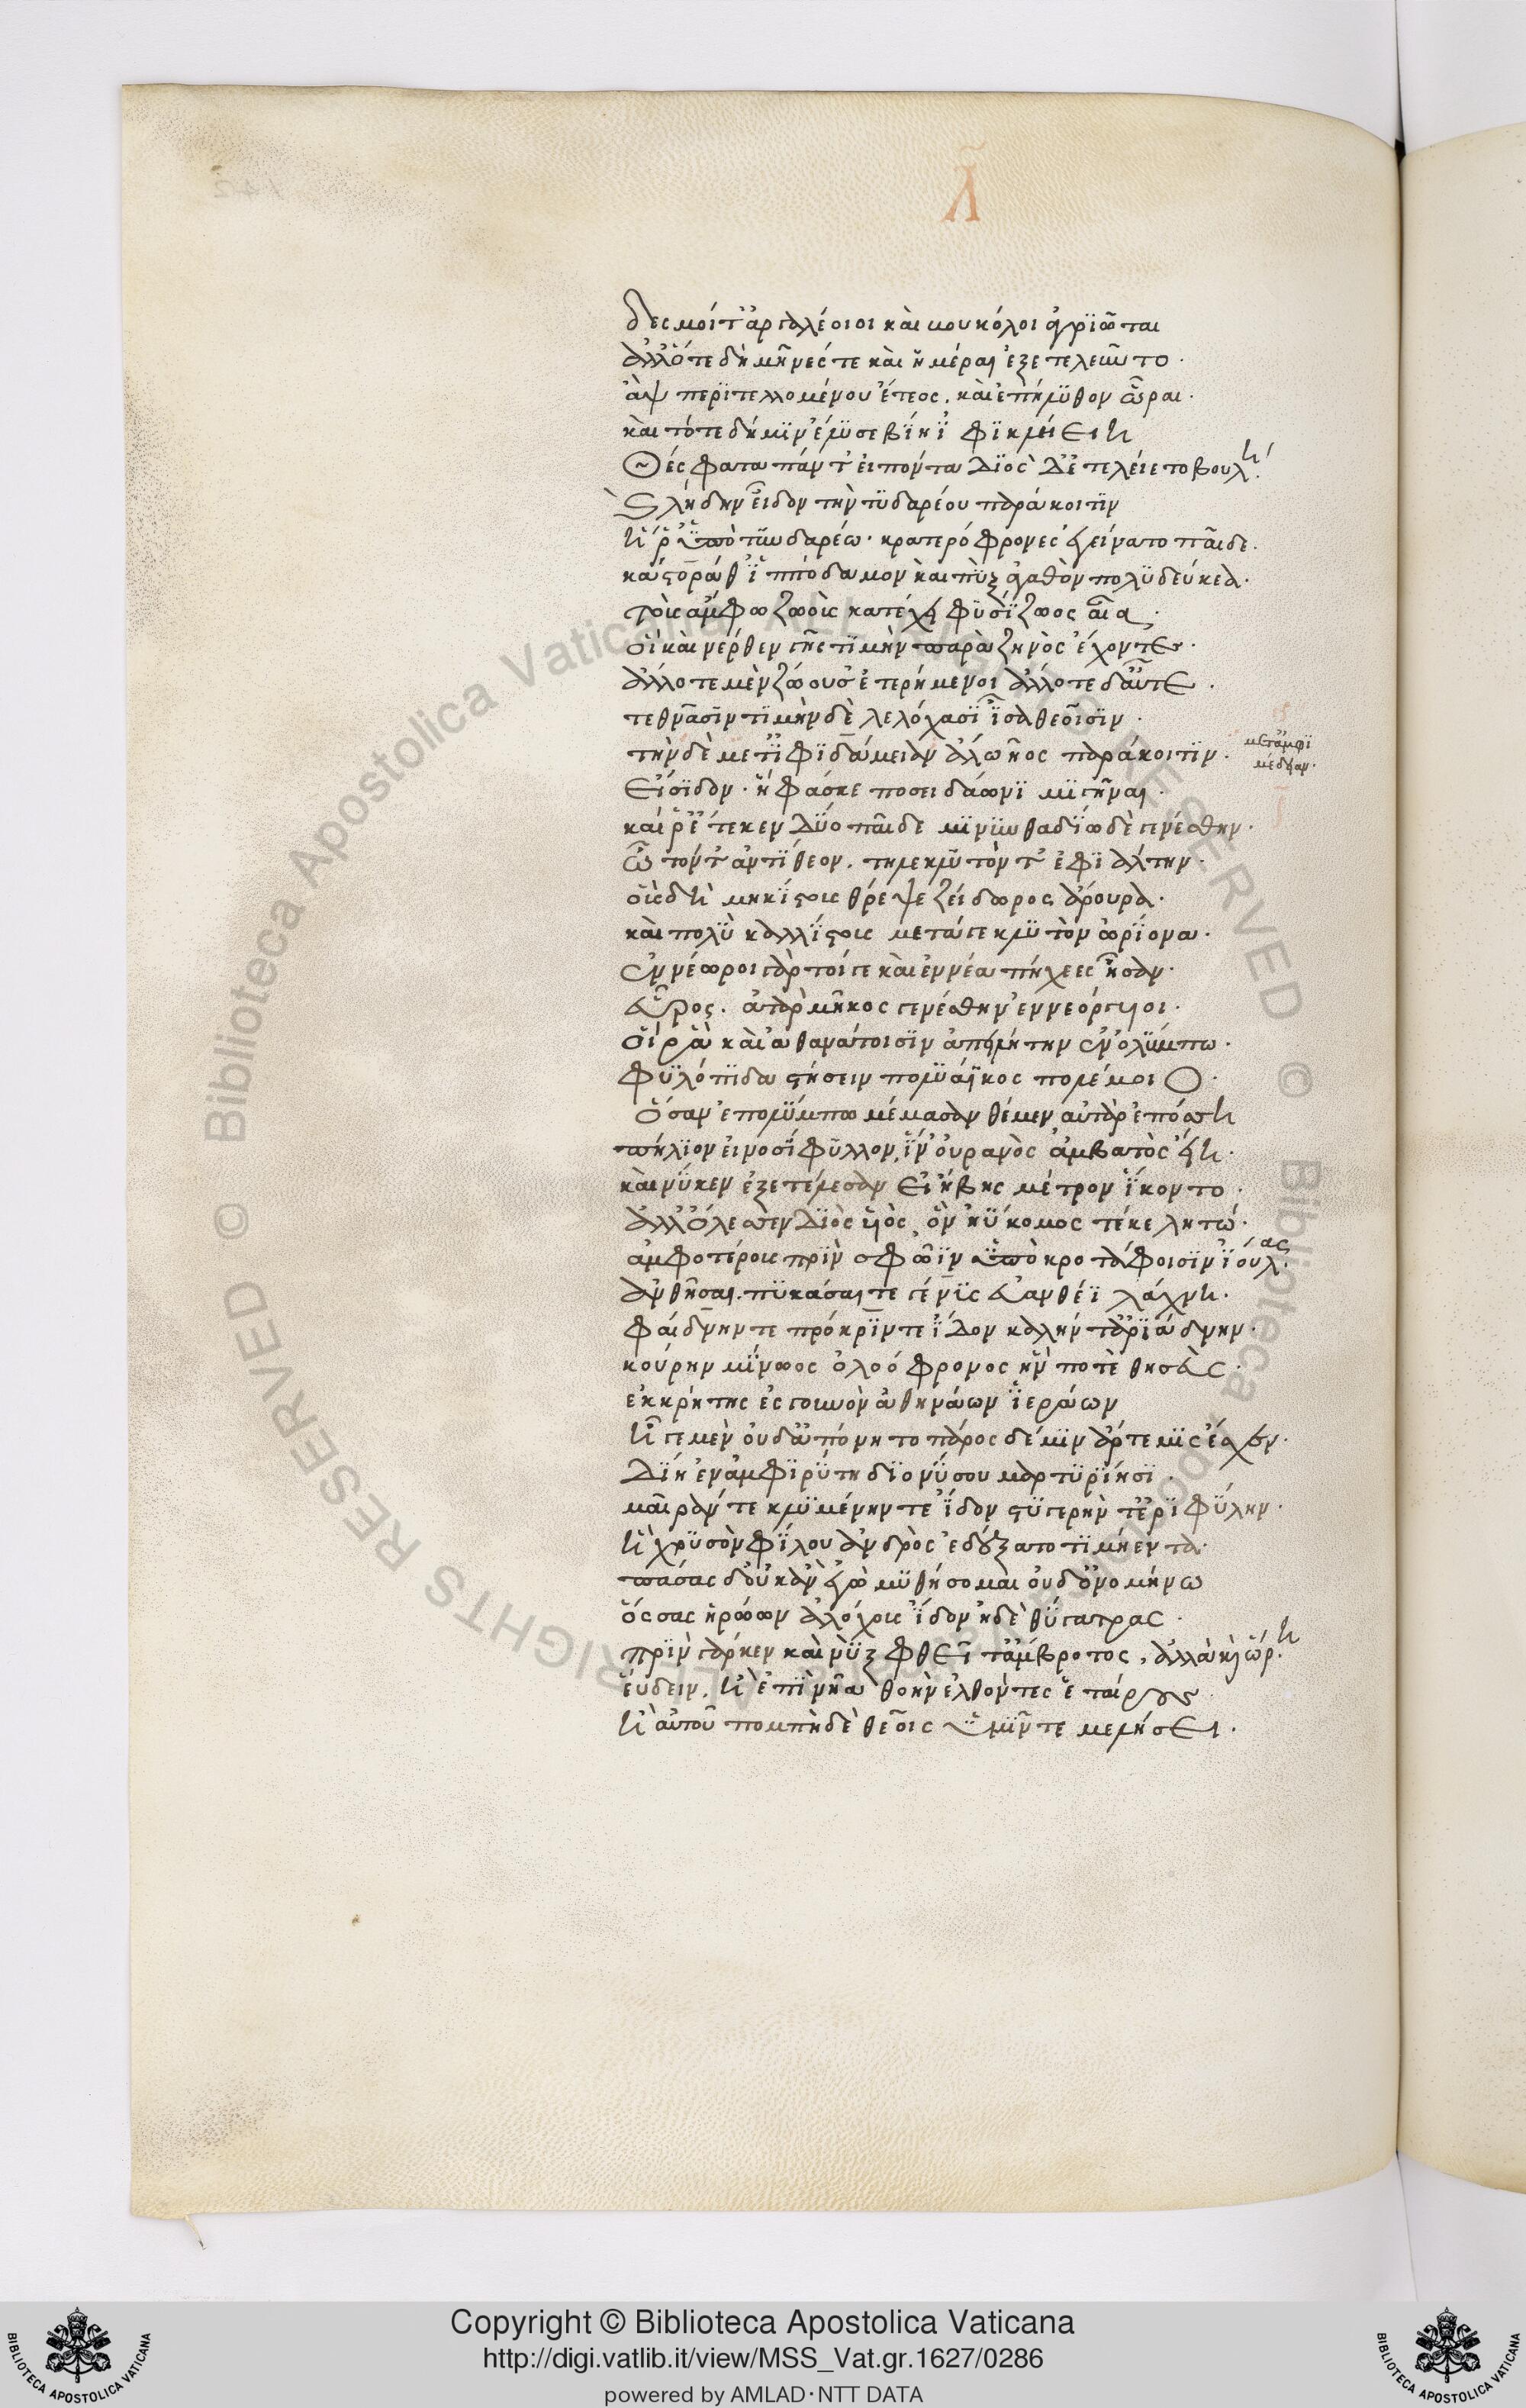 λ̃
δεσμοί τ' ἀργαλέοιοι καὶ βουκόλοι ἀγρϊῶται
ἀλλ' ὅτε δὴ μῆνές τε καὶ ἡμέραι ἐξετελεῦντο ·
ἂψ περϊτελλομένου ἔτεος . καὶ ἐπήλϋθον ὧραι ·
καὶ τότε δή μϊν ἔλϋσε βϊη ϊφϊκληείη
Θέσφατα πάντ' ειπόντα Δϊὸς Δ' ἐτελείετο βουλή ·
Καὶ λήδην εἶδον τὴν τϋδαρέου παράκοιτϊν
ἥ ῥ' ὑπὸ τϋνδαρέω · κρατερόφρονε γείνατο παῖδε ·
κάστορά θ' ϊππόδαμον καὶ πὺξ ἀγαθὸν πολϋδεύκεα ·
τοὺς ἄμφω ζωοὺς κατέχει φϋσϊζωος αἶα ·
οἳ καὶ νέρθεν γῆς τϊμὴν παρὰ ζηνὸς ἔχοντες ·
ἄλλοτε μὲν ζώουσ' ἑτερήμεροι ἄλλοτε δ' αὖτε ·
τεθνᾶσϊν τϊμὴν δὲ λελόγχασϊ ἶσα θεοῖσϊν ·
τὴν δὲ μετ' ϊφϊδάμειαν ἀλωῆος παράκοιτϊν ·
μετ' ἀμφϊ
μέδουσαν ·
Εἴσϊδον · ἣ φάσκε ποσειδάωνϊ μϊγῆναι ·
καί ῥ' ἔτεκεν Δύο παῖδε μϊνυνθαδίω δὲ γενέσθην ·
Ὦτόν τ' ἀντίθεον . τηλεκλϋτόν τ' ἐφϊάλτην ·
οὓς δὴ μηκίστους θρέψε ζείδωρος ἄρουρα ·
καὶ πολὺ καλλίστους μετά γε κλϋτὸν ὠρίονα ·
ἐννέωροι γὰρ τοί γε καὶ ἐννέα πήχεες ἦσαν ·
εὖρος . ἀτὰρ μῆκος γενέσθην ἐννεόργυιοι ·
οἵ ῥα καὶ ἀθανάτοισϊν ἀπειλήτην ἐν ὀλύμπω ·
φϋλόπϊδα στήσειν πολϋάϊκος πολέμοιο ·
Ὄσσαν ἐπ' ολύμπω μέμασαν θέμεν αὐτὰρ ἐπ' όσση
πήλϊον εἰνοσίφϋλλον, ἵν' οὐρανὸς ἀμβατὸς εἴη ·
καὶ νύ κεν ἐξετέλεσαν Εἰ ἥβης μέτρον ἵκοντο ·
ἀλλ' ὄλεσεν Δϊὸς υἱὸς, ὃν ἠΰκομος τέκε λητώ ·
ἀμφοτέρους πρϊν σφῶϊν ὑπὸ κροτάφοισϊν ϊούλους ·
ἀνθῆσαι . πϋκάσαι τε γένϋς εὐανθέϊ λάχνη ·
φαίδρην τε πρόκρϊν τε ἴδον καλήν τ' ἀρϊάδνην ·
κούρην μίνωος ὀλοόφρονος ἥν ποτε θησεὺς ·
ἐκ κρήτης ἐς γουνὸν ἀθηνάων ἱεράων
ἦγε μὲν οὐδ' ἀπόνητο πάρος δέ μϊν ἄρτεμϊς ἔσχεν ·
Δϊη ἐν ἀμφϊρύτη δϊονύσου μαρτϋρίησϊ ·
μαῖράν τε κλϋμένην τε ἴδον στϋγερήν τ' ἐρϊφύλην ·
ἣ χρϋσὸν φίλου ἀνδρὸς ἐδέξατο τϊμήεντα ·
πάσας δ' οὐκ ἂν ἐγὼ μϋθήσομαι οὐδ' ὀνομήνω
ὅσσας ἡρώων ἀλόχους ἴδον ἠδὲ θύγατρας ·
πρὶν γάρ κεν καὶ νὺξ φθεῖτ' ἄμβροτος, ἀλλὰ καὶ ὥρη
εὕδειν, ἢ ἐπϊ νῆα θοὴν ἐλθόντες ἑταίρους
ἢ αὐτοῦ πομπὴ δὲ θεοῖς ὑμῖν τε μελήσει ·
Copyright © Biblioteca Apostolica Vaticana
http://digi.vatlib.it/view/MSS_Vat.gr.1627/0286
powered by AMLAD·NTT DATA
BIBLIOTECA APOSTOLICA VATICANA
BIBLIOTECA APOSTOLICA VATICANA
© Biblioteca Apostolica Vaticana ALL RIGHTS RESERVED © Biblioteca Apostolica Vaticana ALL RIGHTS RESERVED